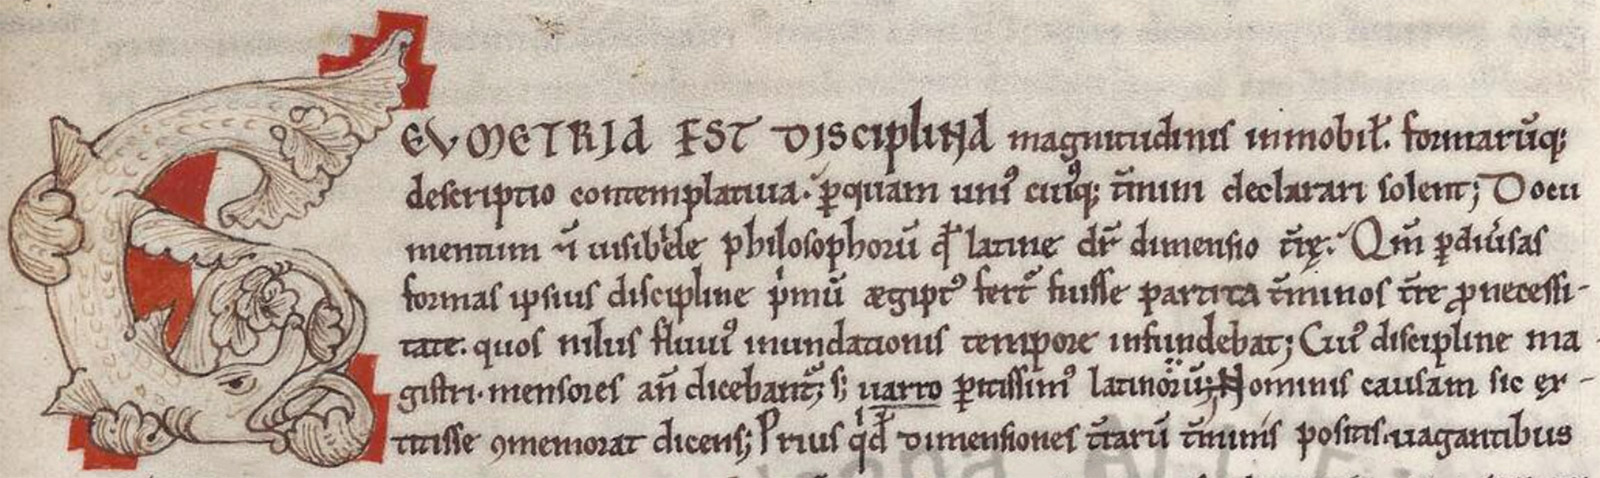 GEVMETRIA EST DISCIPLINA magnitudinis inmobil̛. formarūq;
descriptio contemplatiua. ꝑquam uni᷒ cuiꝰq; t̄mini declarari solent; Docu
mentum n̄ uisibile philosophorū qđ latine dr̄ dimensio t̄rę. Qm̄ ꝑdiūsas
formas ipsius discipline pͥmū ægiptꝰ fert᷑ fuisse partita t̄minos t̄re ꝓnecessi-
tate. quos nilus fluuiꝰ inundationis tempore infundebat; Cuiꝰ discipline ma
gistri. mensores an̄ dicebant᷑; s; uarro ꝑitissimꝰ latinorū; Nominis causam sic ex-
titisse ꝯmemorat dicens; Prius qͥd̄ dimensiones t̄rarū t̄minis positis. uagantibus